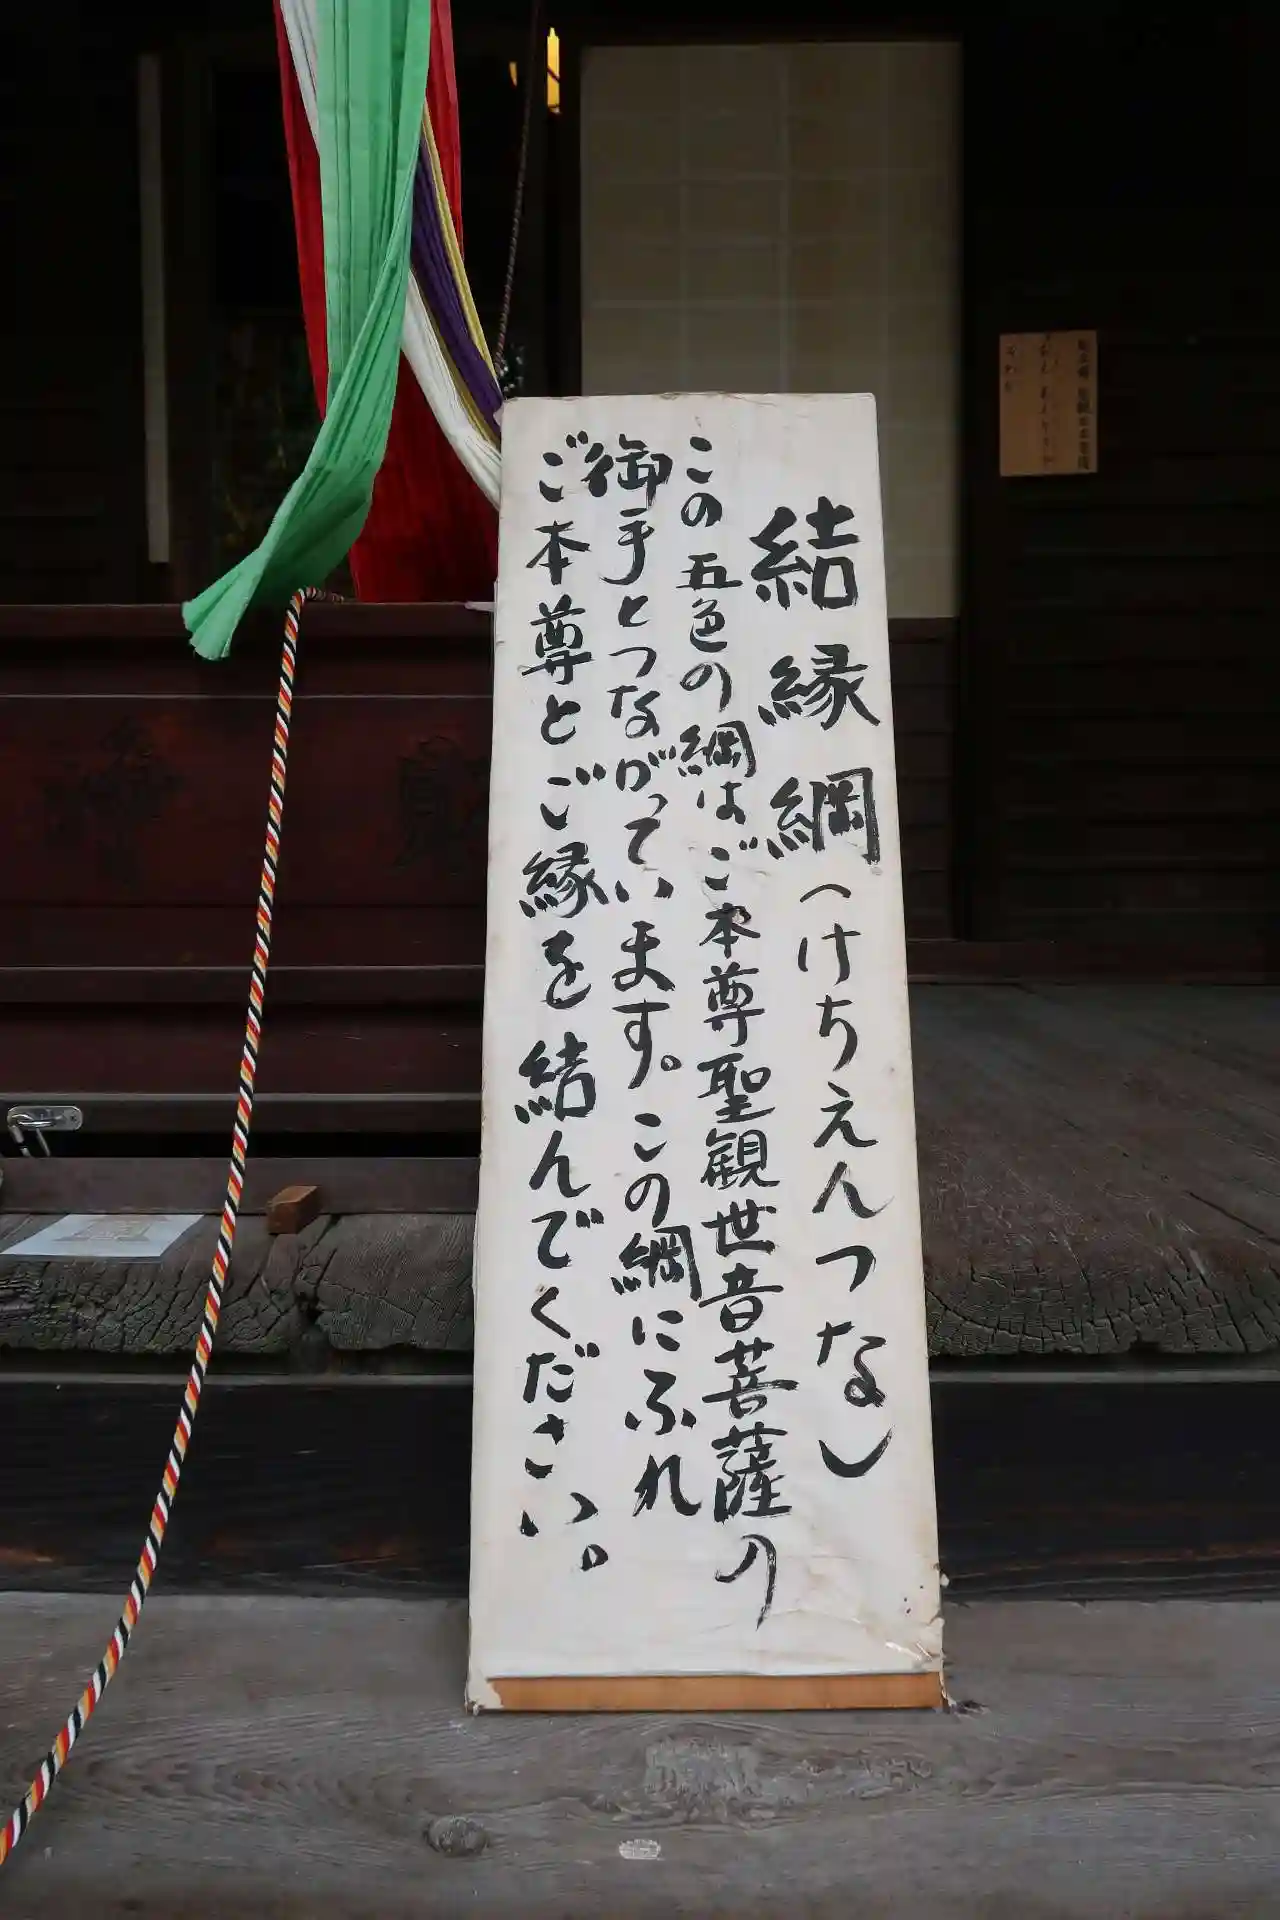 結縁綱(けちえんつな)
この五色の綱はご本尊聖観世音菩薩の
御手とつながっています。この綱にふれ
ご本尊とご縁を結んでください。